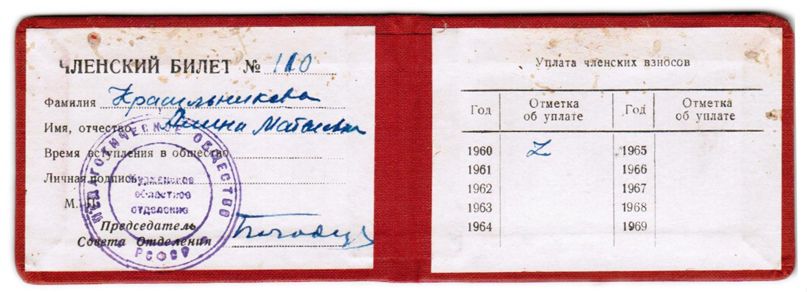 ЧЛЕНСКИЙ БИЛЕТ № 110
Фамилия Красильникова
Имя, отчество Матвеевна
Время вступления в общество
Личная подпись
М.
Председатель
Совета Отделения
ПЕДАГОГИЧЕСКОЕ ОБЩЕСТВО
РСФСР
областное
отделение
Уплата членских взносов
Год Отметка об уплате Год Отметка об уплате
1960 1965
1961 1966
1962 1967
1963 1968
1964 1969